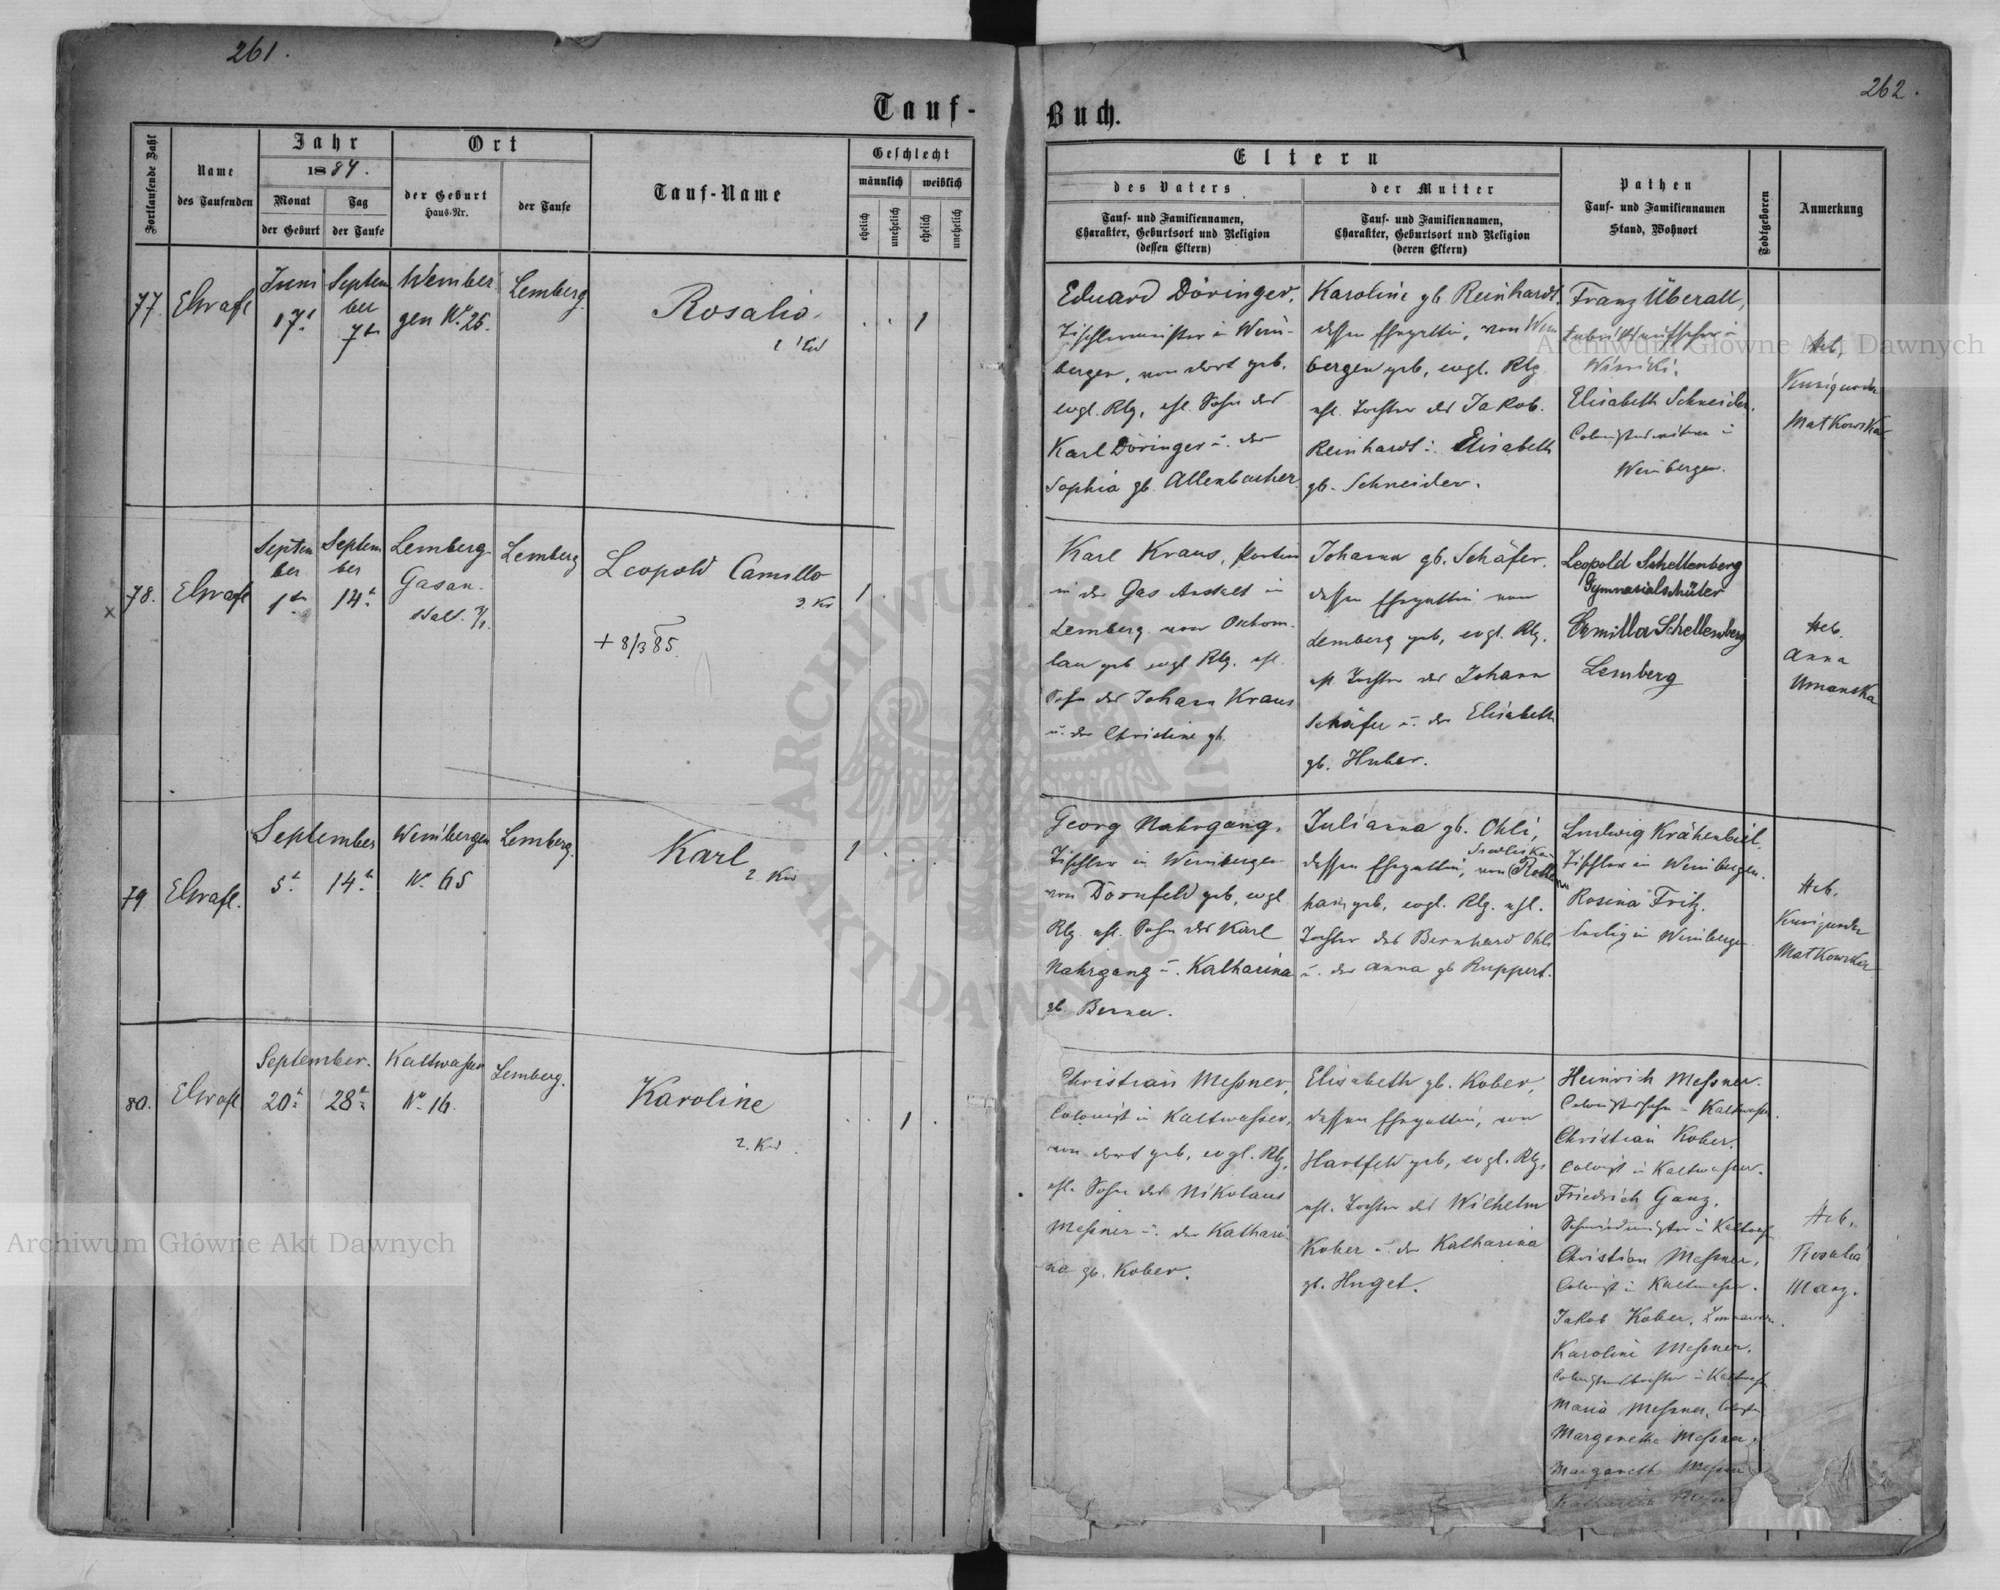 261.
262.
Tauf-
Buch.
Fortlaufende Zahl
Name
des Taufenden
Jahr
1884.
Monat
der Geburt
Tag
der Taufe
Ort
der Geburt
Haus-Nr.
der Taufe
Tauf-Name
Geschlecht
männlich
weiblich
ehelich
unehelich
ehelich
unehelich
Eltern
des Vaters
Tauf- und Familiennamen,
Charakter, Geburtsort und Religion
(dessen Eltern)
der Mutter
Tauf- und Familiennamen,
Charakter, Geburtsort und Religion
(deren Eltern)
Pathen
Tauf- und Familiennamen
Stand, Wohnort
Todtgeboren
Anmerkung
77.
Juni
17t
Septem
ber
7t
Weinber
gen Nr. 26.
Lemberg.
Rosalia.
1
Eduard Döringer,
Tischlermeister in Wein-
bergen, von dort geb.
evgl. Rlg, ehl. Sohn des
Karl Döringer u. der
Sophia gb. Allenbacher.
Karoline gb. Reinhardt.
dessen Ehegattin, von Wein
bergen geb, evgl. Rlg
ehl. Tochter des Jakob
Reinhardt u. Elisabeth
gb. Schneider.
Franz Überall,
Elisabeth Schneider.
Weinbergen.
Heb.
Kunigunda
Matkowska
78.
Septem
ber
1t
Septem
ber
14t
Lemberg.
Gasan-
stalt.
Lemberg
Leopold Camillo
3. Kd
+ 8/3 85.
1
Karl Kraus, Portier
in der Gas Anstalt in
Lemberg von
geb evgl Rlg. ehl.
Sohn des Johann Kraus
u. der Christine gb.
Johanna gb. Schäfer.
dessen Ehegattin von
Lemberg geb, evgl. Rlg.
ehl. Tochter des Johann
Schäfer u. der Elisabeth
gb. Huber.
Leopold Schellenberg
Gymnasialschüler
Camilla Schellenberg
Lemberg
Heb.
Anna
Umanska
79
September
5t
14t
Weinbergen
Nr. 65
Lemberg.
Karl
2. Kd
1
Georg Nahrgang,
Tischler in Weinbergen
von Dornfeld geb, evgl
Rlg. ehl. Sohn des Karl
Nahrgang u. Katharina
gb. Berner.
Julianna gb. Ohli,
dessen Ehegattin, von
hain geb, evgl. Rlg. ehl.
Tochter des Bernhard Ohli
u. der Anna gb Ruppert.
Ludwig Krähenbiel.
Tischler in Weinbergen.
Rosina Fritz.
ledig in Weinbergen
Heb.
Kunigunda
Matkowska
80.
September.
20t
28t
Kaltwasser
Nr. 16.
Lemberg.
Karoline
2. Kd
1
Christian Meßner,
Colonist in Kaltwasser,
von dort geb, evgl. Rlg,
ehl. Sohn des Nikolaus
Meßner u. der Kathari
na gb. Kober.
Elisabeth gb. Kober,
dessen Ehegattin, von
Hartfeld geb, evgl. Rlg,
ehl. Tochter des Wilhelm
Kober u. der Katharina
gb. Huget.
Heinrich Meßner.
Colonistensohn in Kaltwasser.
Christian Kober.
Colonist in Kaltwasser.
Friedrich Ganz.
Schmiedmeister in Kaltwasser
Christian Meßner,
Colonist in Kaltwasser.
Jakob Kober.
Karoline Meßner.
Colonistentochter in Kaltwasser
Maria Meßner.
Margaretha Meßner,
Margareth Meßner
Katharina
Heb.
Rosalia
Manz.
Archiwum Główne Akt Dawnych
Archiwum Główne Akt Dawnych
ARCHIWUM GŁÓWNE AKT DAWNYCH